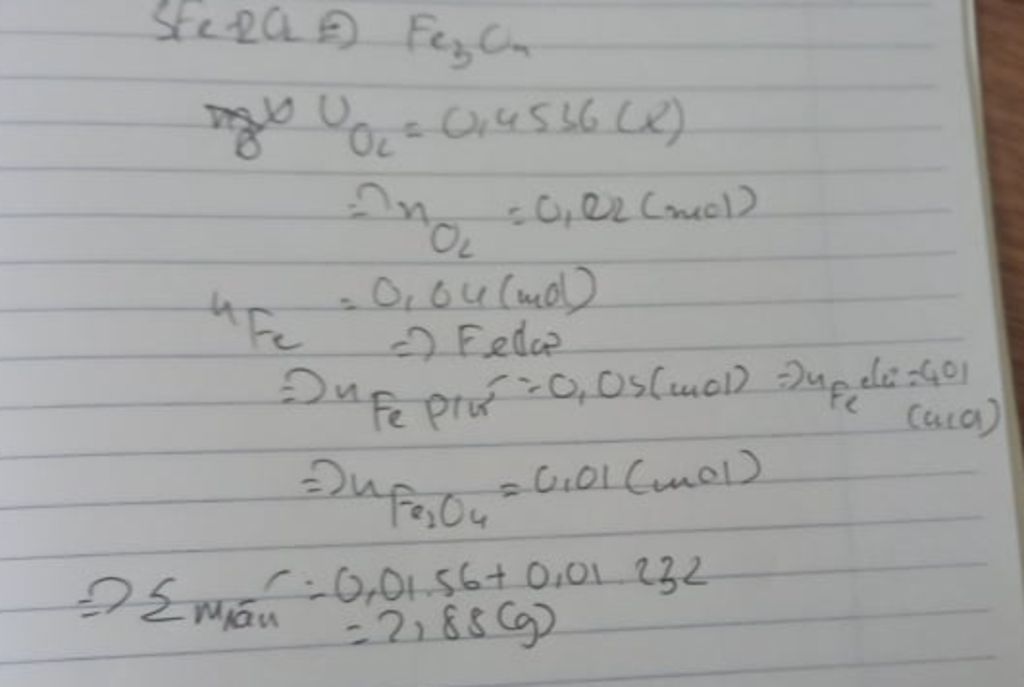 3Fe + 2O₂ ⇒ Fe₃O₄
V_O₂ = 0,4536 (l)
⇒ n_O₂ = 0,02 (mol)
n_Fe = 0,04 (mol)
⇒ Fe dư
⇒ n_Fe pư = 0,03 (mol) ⇒ n_Fe dư = 0,01 (mol)
⇒ n_Fe₃O₄ = 0,01 (mol)
⇒ Σ m rắn = 0,01.56 + 0,01.232
= 2,88 (g)